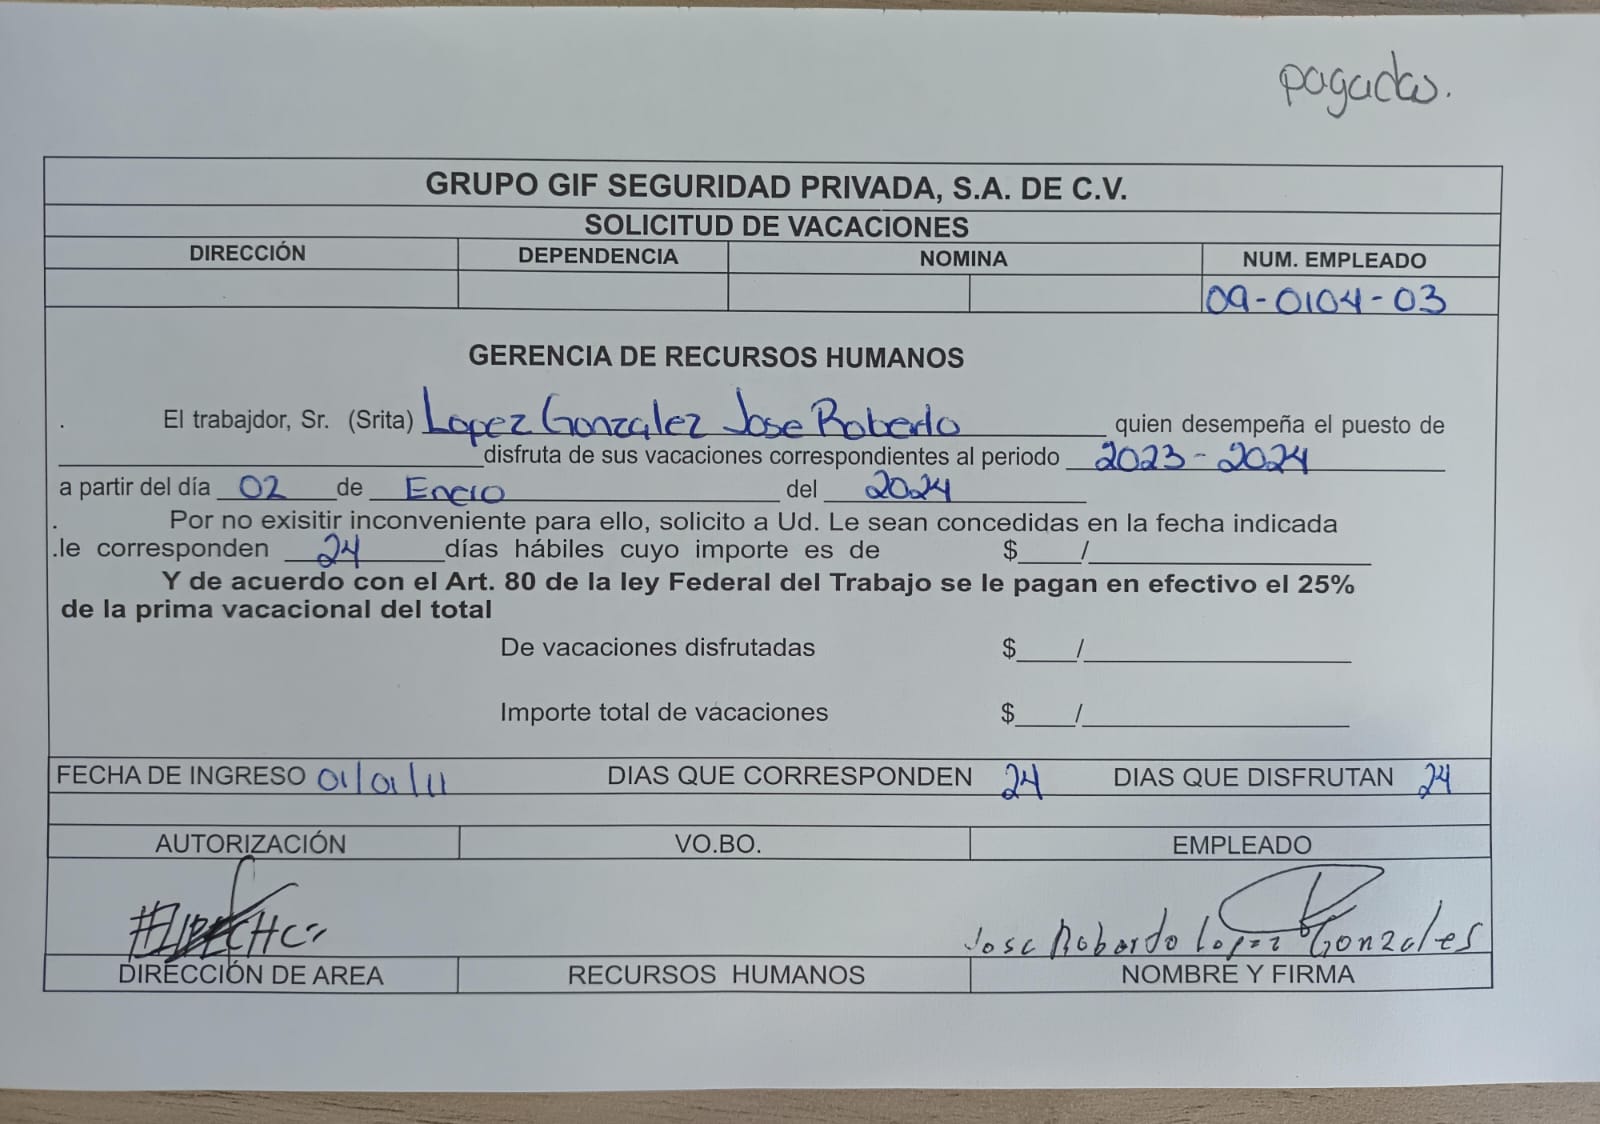 pagadas.
GRUPO GIF SEGURIDAD PRIVADA, S.A. DE C.V.
SOLICITUD DE VACACIONES
DIRECCIÓN DEPENDENCIA NOMINA NUM. EMPLEADO
09-0104-03
GERENCIA DE RECURSOS HUMANOS
. El trabajdor, Sr. (Srita) Lopez Gonzalez Jose Roberto quien desempeña el puesto de
disfruta de sus vacaciones correspondientes al periodo 2023-2024
a partir del día 02 de Enero del 2024
. Por no exisitir inconveniente para ello, solicito a Ud. Le sean concedidas en la fecha indicada
.le corresponden 24 días hábiles cuyo importe es de $____/____
Y de acuerdo con el Art. 80 de la ley Federal del Trabajo se le pagan en efectivo el 25%
de la prima vacacional del total
De vacaciones disfrutadas $____/____
Importe total de vacaciones $____/____
FECHA DE INGRESO 01/01/11 DIAS QUE CORRESPONDEN 24 DIAS QUE DISFRUTAN 24
AUTORIZACIÓN VO.BO. EMPLEADO
Jose Robardo Lopez Gonzales
DIRECCIÓN DE AREA RECURSOS HUMANOS NOMBRE Y FIRMA